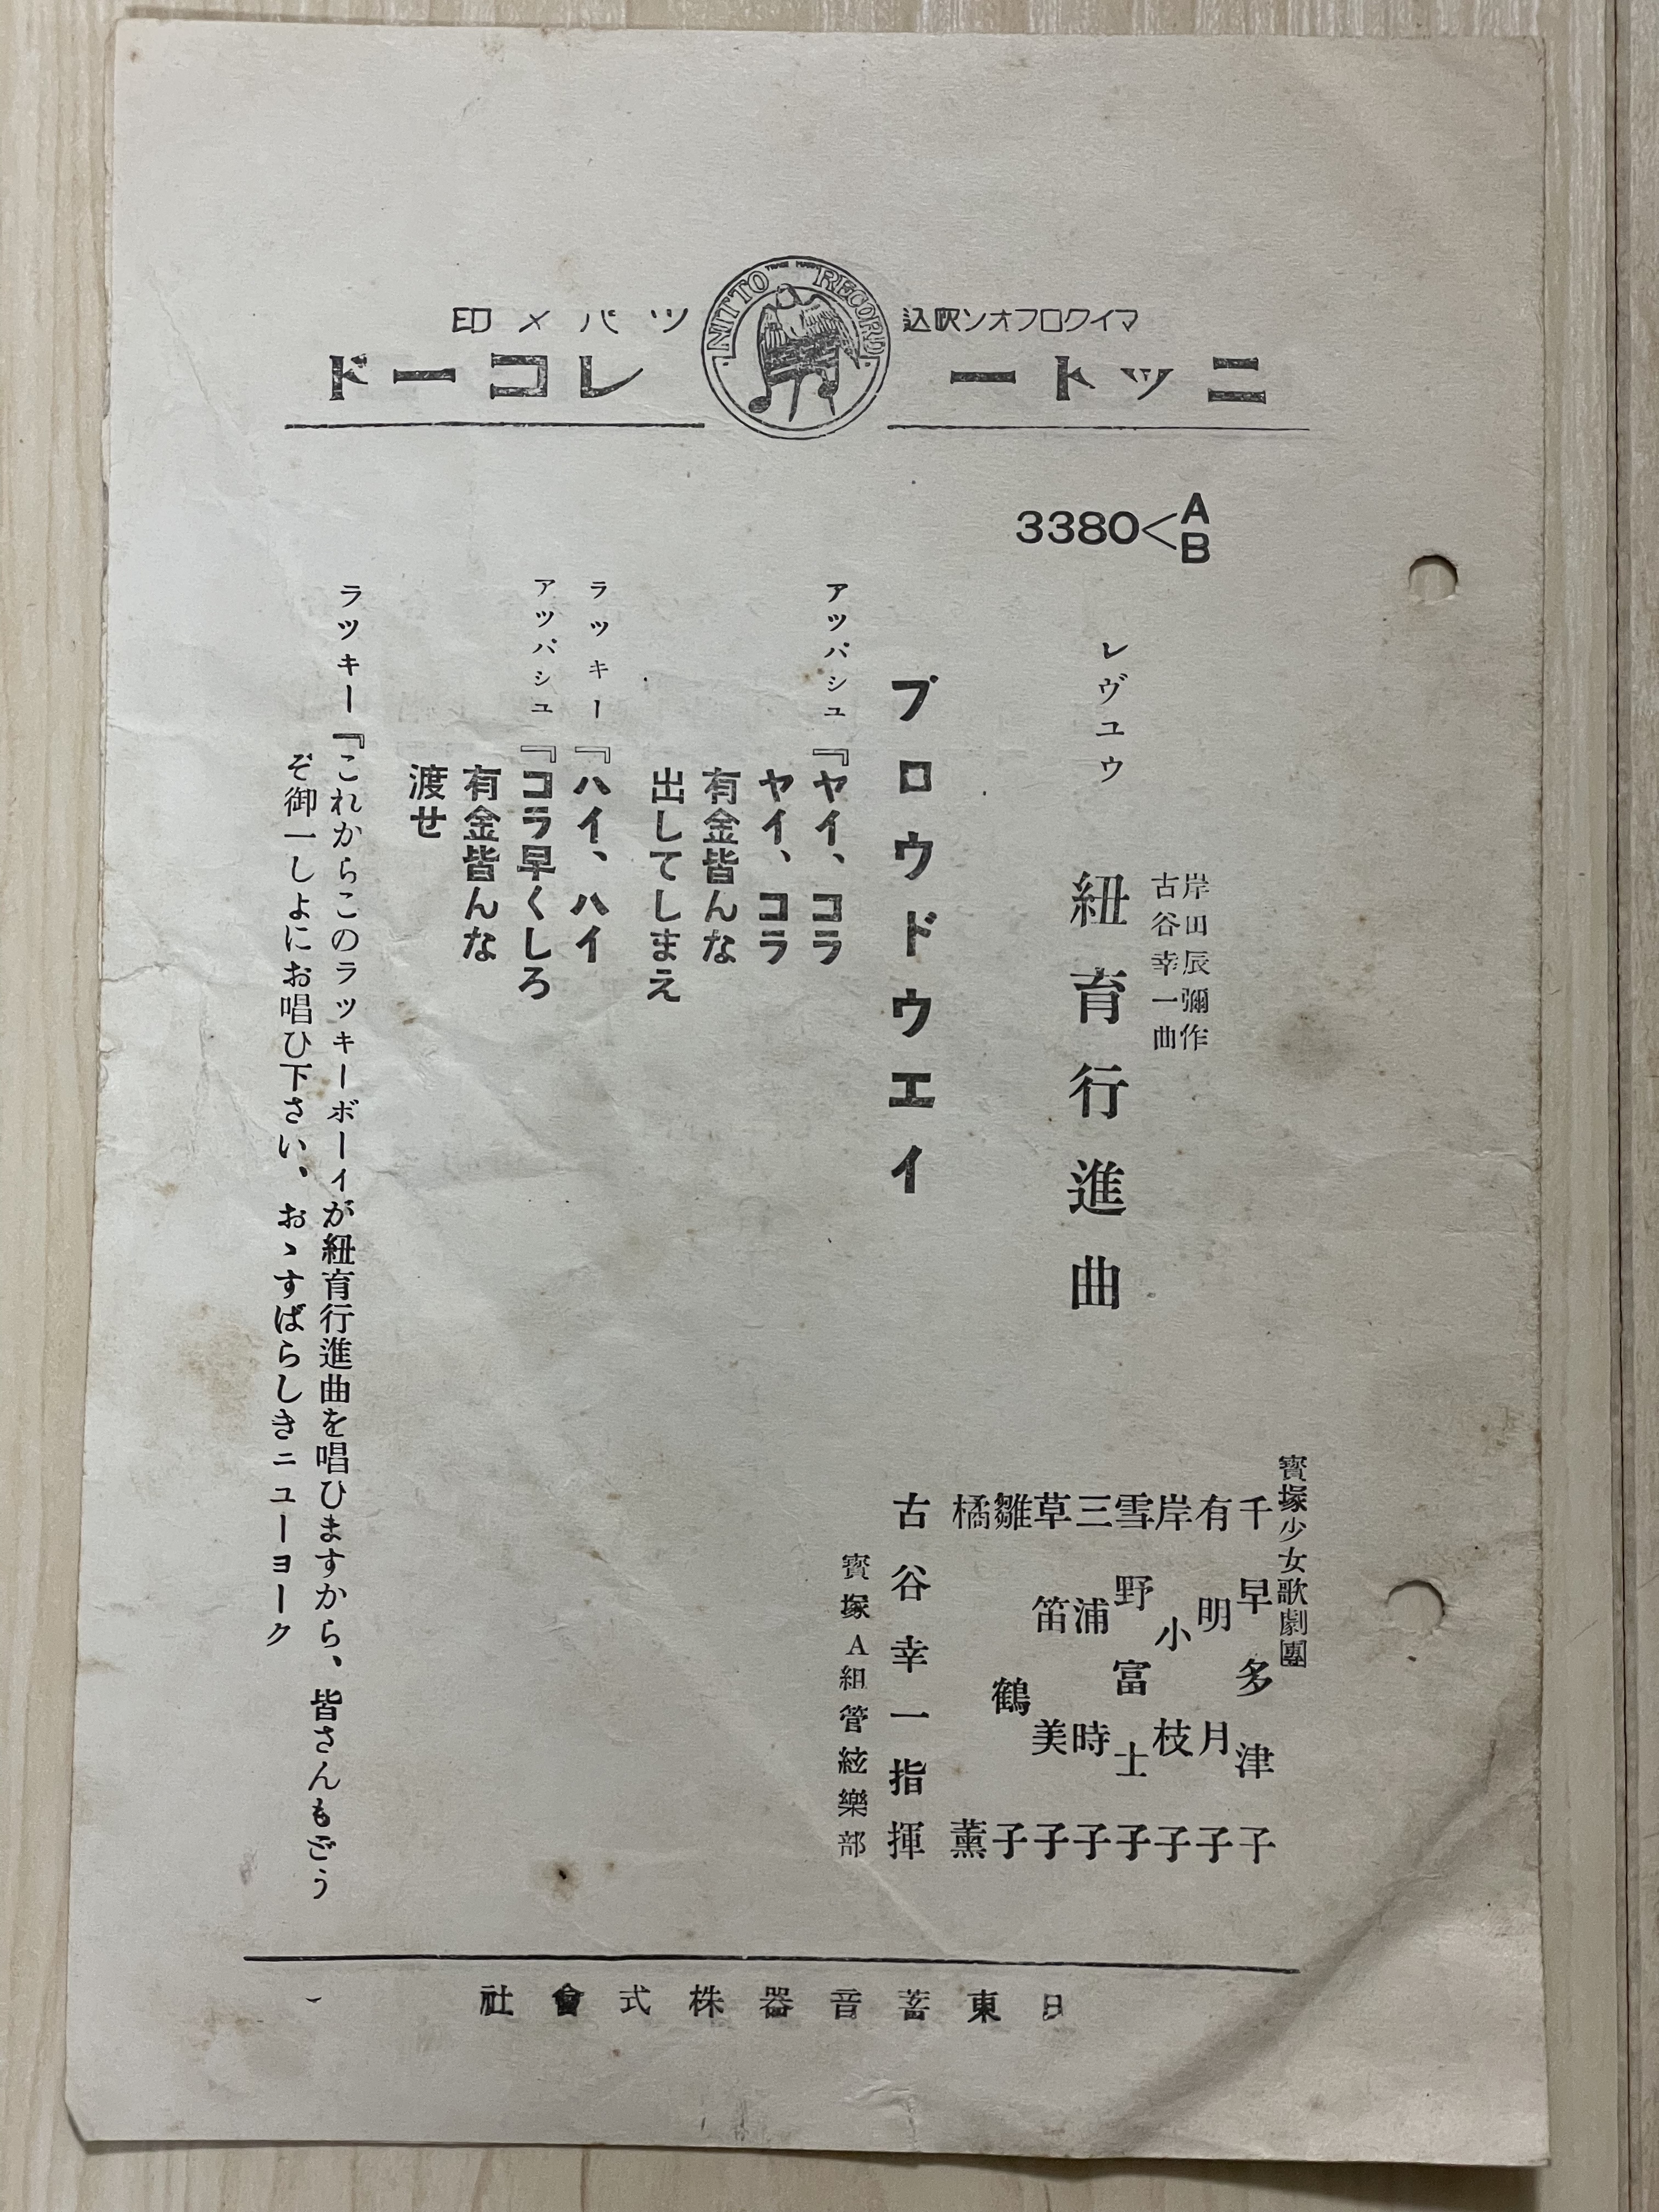 マイクロフオン吹込
ツバメ印
NITTO RECORD
TRADE MARK
ニットー
レコード
3380<A
B
レヴユウ
岸田辰彌作
古谷幸一曲
紐育行進曲
寳塚少女歌劇團
千早多津子
有明月子
岸小枝子
雪野富士子
三浦時子
草笛美子
雛鶴子
橘薫
古谷幸一指揮
寳塚A組管絃樂部
ブロウドウエイ
アツパシユ『ヤイ、コラ
ヤイ、コラ
有金皆んな
出してしまえ
ラツキー『ハイ、ハイ
アツパシユ『コラ早くしろ
有金皆んな
渡せ
ラツキー『これからこのラツキーボーイが紐育行進曲を唱ひますから、皆さんもどう
ぞ御一しよにお唱ひ下さい、おゝすばらしきニユーヨーク
日東蓄音器株式會社